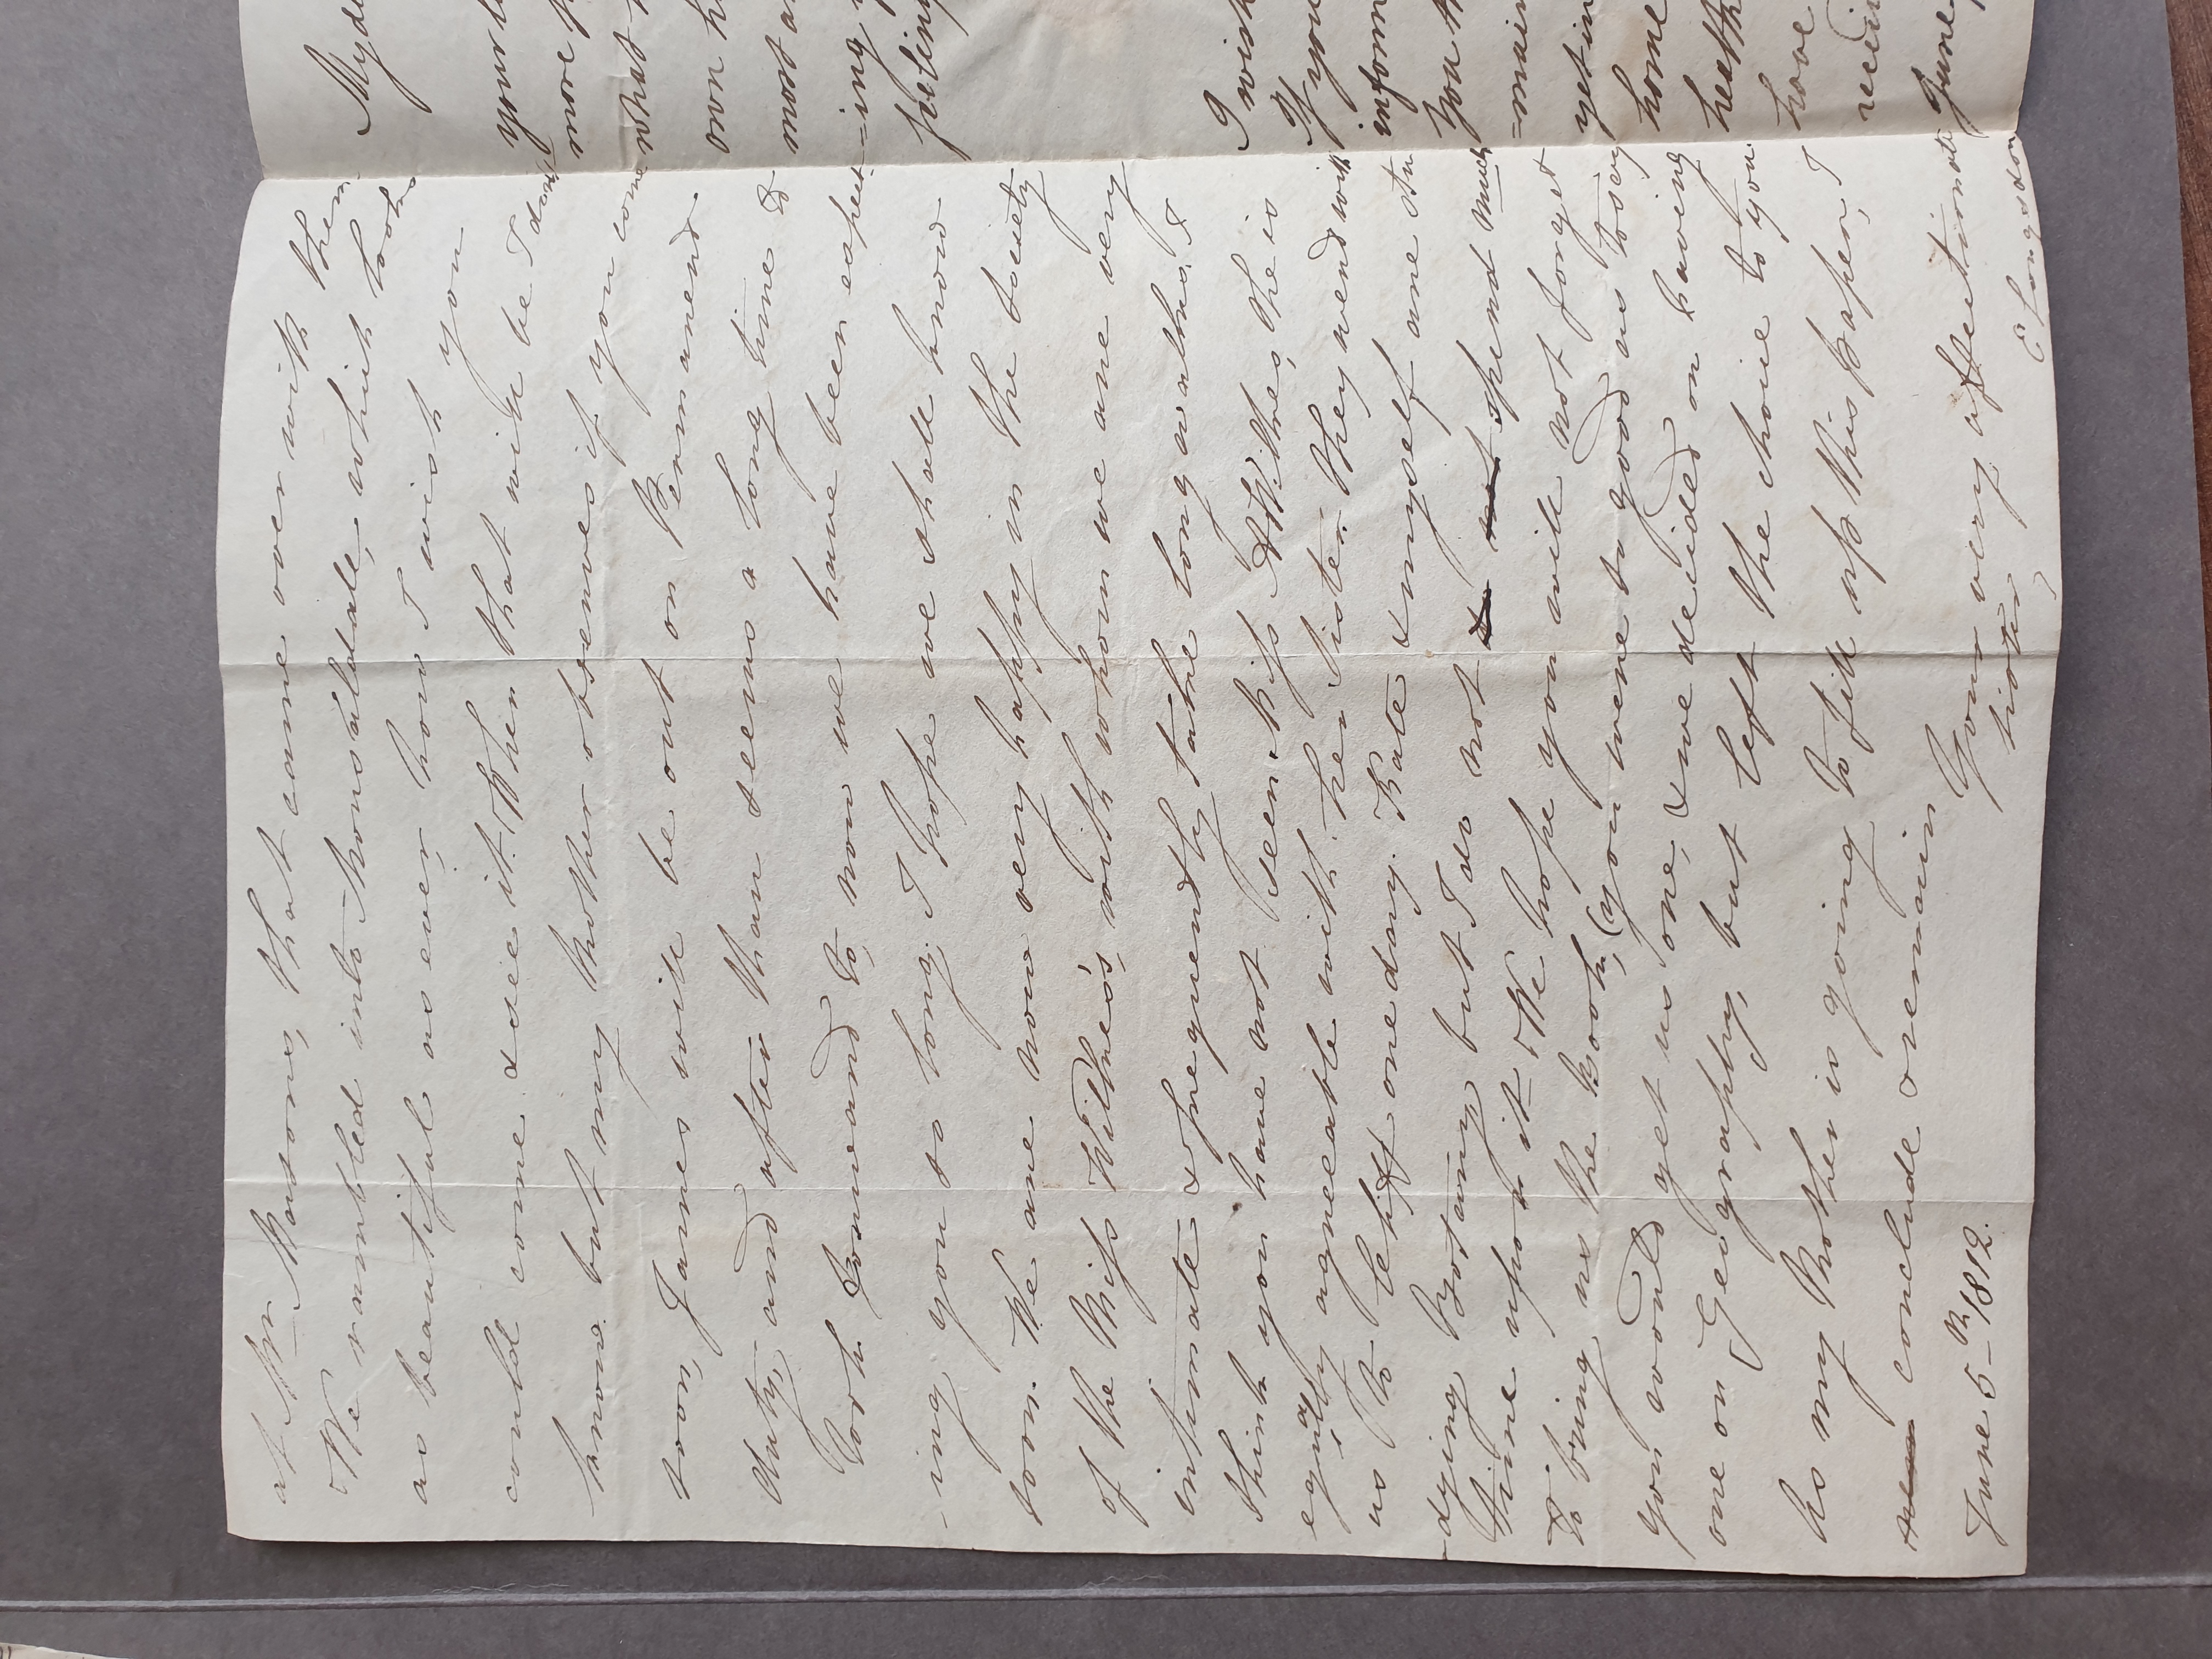 at Mr Marsons, that came over with them
We rambled into Monsaldale, which looks
as beautiful as ever, how I wish you
could come & see it. When that will be I dont
know but my Mother observes if you come
soon, James will be out on Permanend.
duty, and after than seems a long time to
look forward to, now we have been expect-
-ing you so long. I hope we shall know
soon. We are now very happy in the society
of the Miss Wilthes's, with whom we are very
intimate & frequently take long walks, I
think you have not seen Miss A Withes, she is
equally agreeable with her sister. they wend with
us to Lehff one day. Kate & myself are stu
-dying Botany but I do not spend much
time upon it We hope you will not forget
to bring us the Book, (you were so good as to say
you would get us one, & we decided on having
one on Geography, but left the choice to you
As my Mother is going to fill up this paper, I
conclude & remain
Your very affectionate
sister,
E Longsdon
June 5th 1812.
My de
your l
more
what
own h
most a
=ing
feeling
I wish
If you
inform
you th
=main
yet in
home
health
have
receiv
June